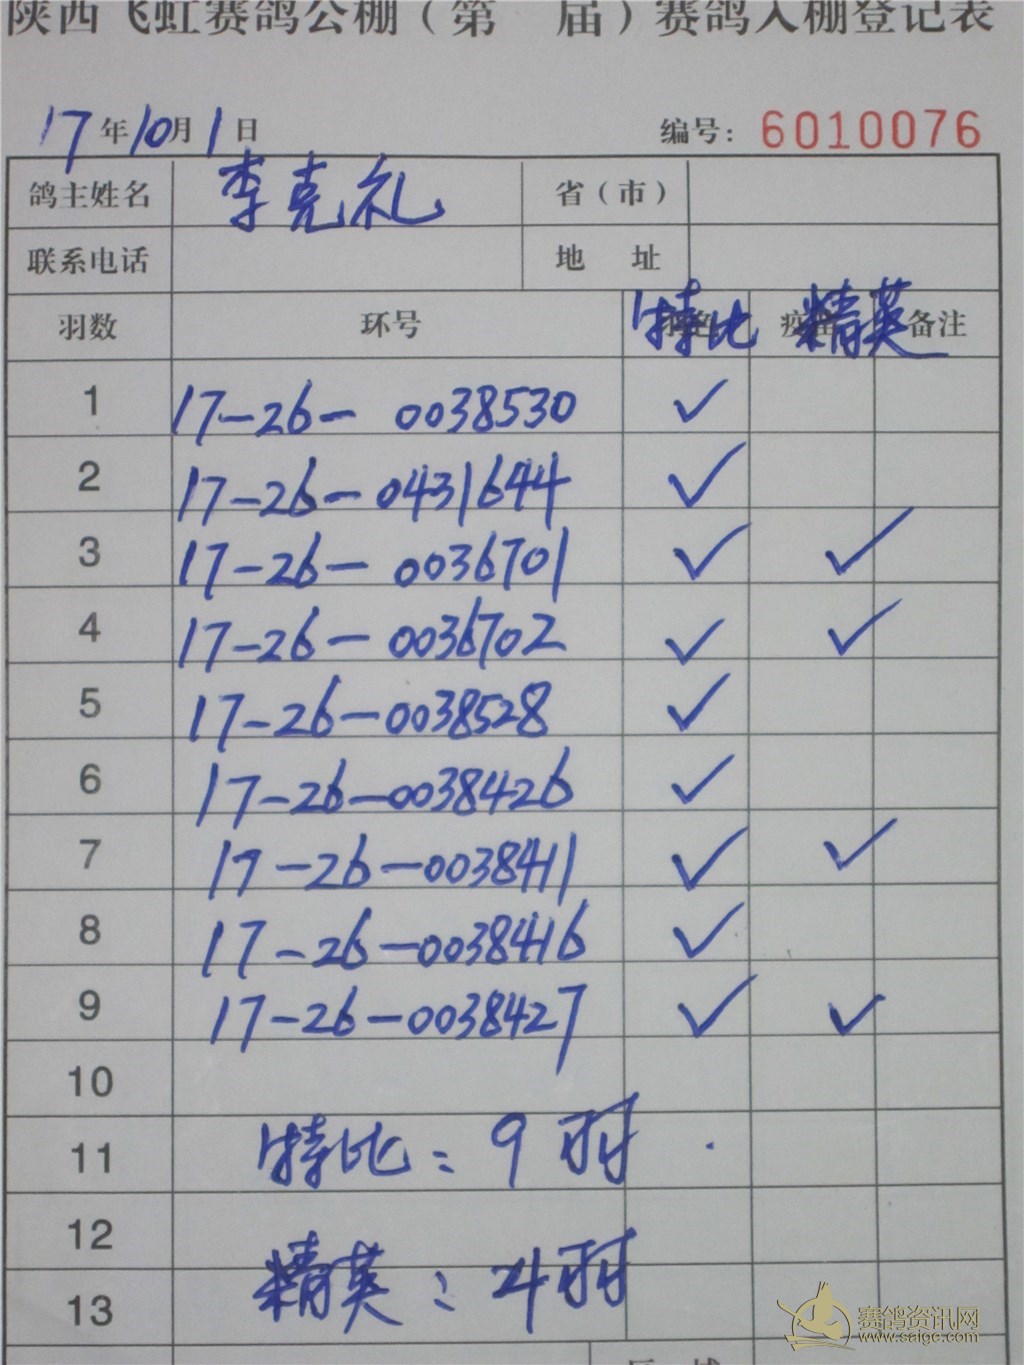 陕西飞虹赛鸽公棚（第 届）赛鸽入棚登记表
17年10月1日 编号：6010076
鸽主姓名 李克礼 省（市）
联系电话 地 址
羽数 环号 特比 精英 备注
1 17-26- 0038530 ✓
2 17-26-0431644 ✓
3 17-26-0036701 ✓ ✓
4 17-26-0036702 ✓ ✓
5 17-26-0038528 ✓
6 17-26-0038426 ✓
7 17-26-0038411 ✓ ✓
8 17-26-0038416 ✓
9 17-26-0038427 ✓ ✓
10
11 特比：9羽
12
13 精英：4羽
赛鸽资讯网
www.saigc.com